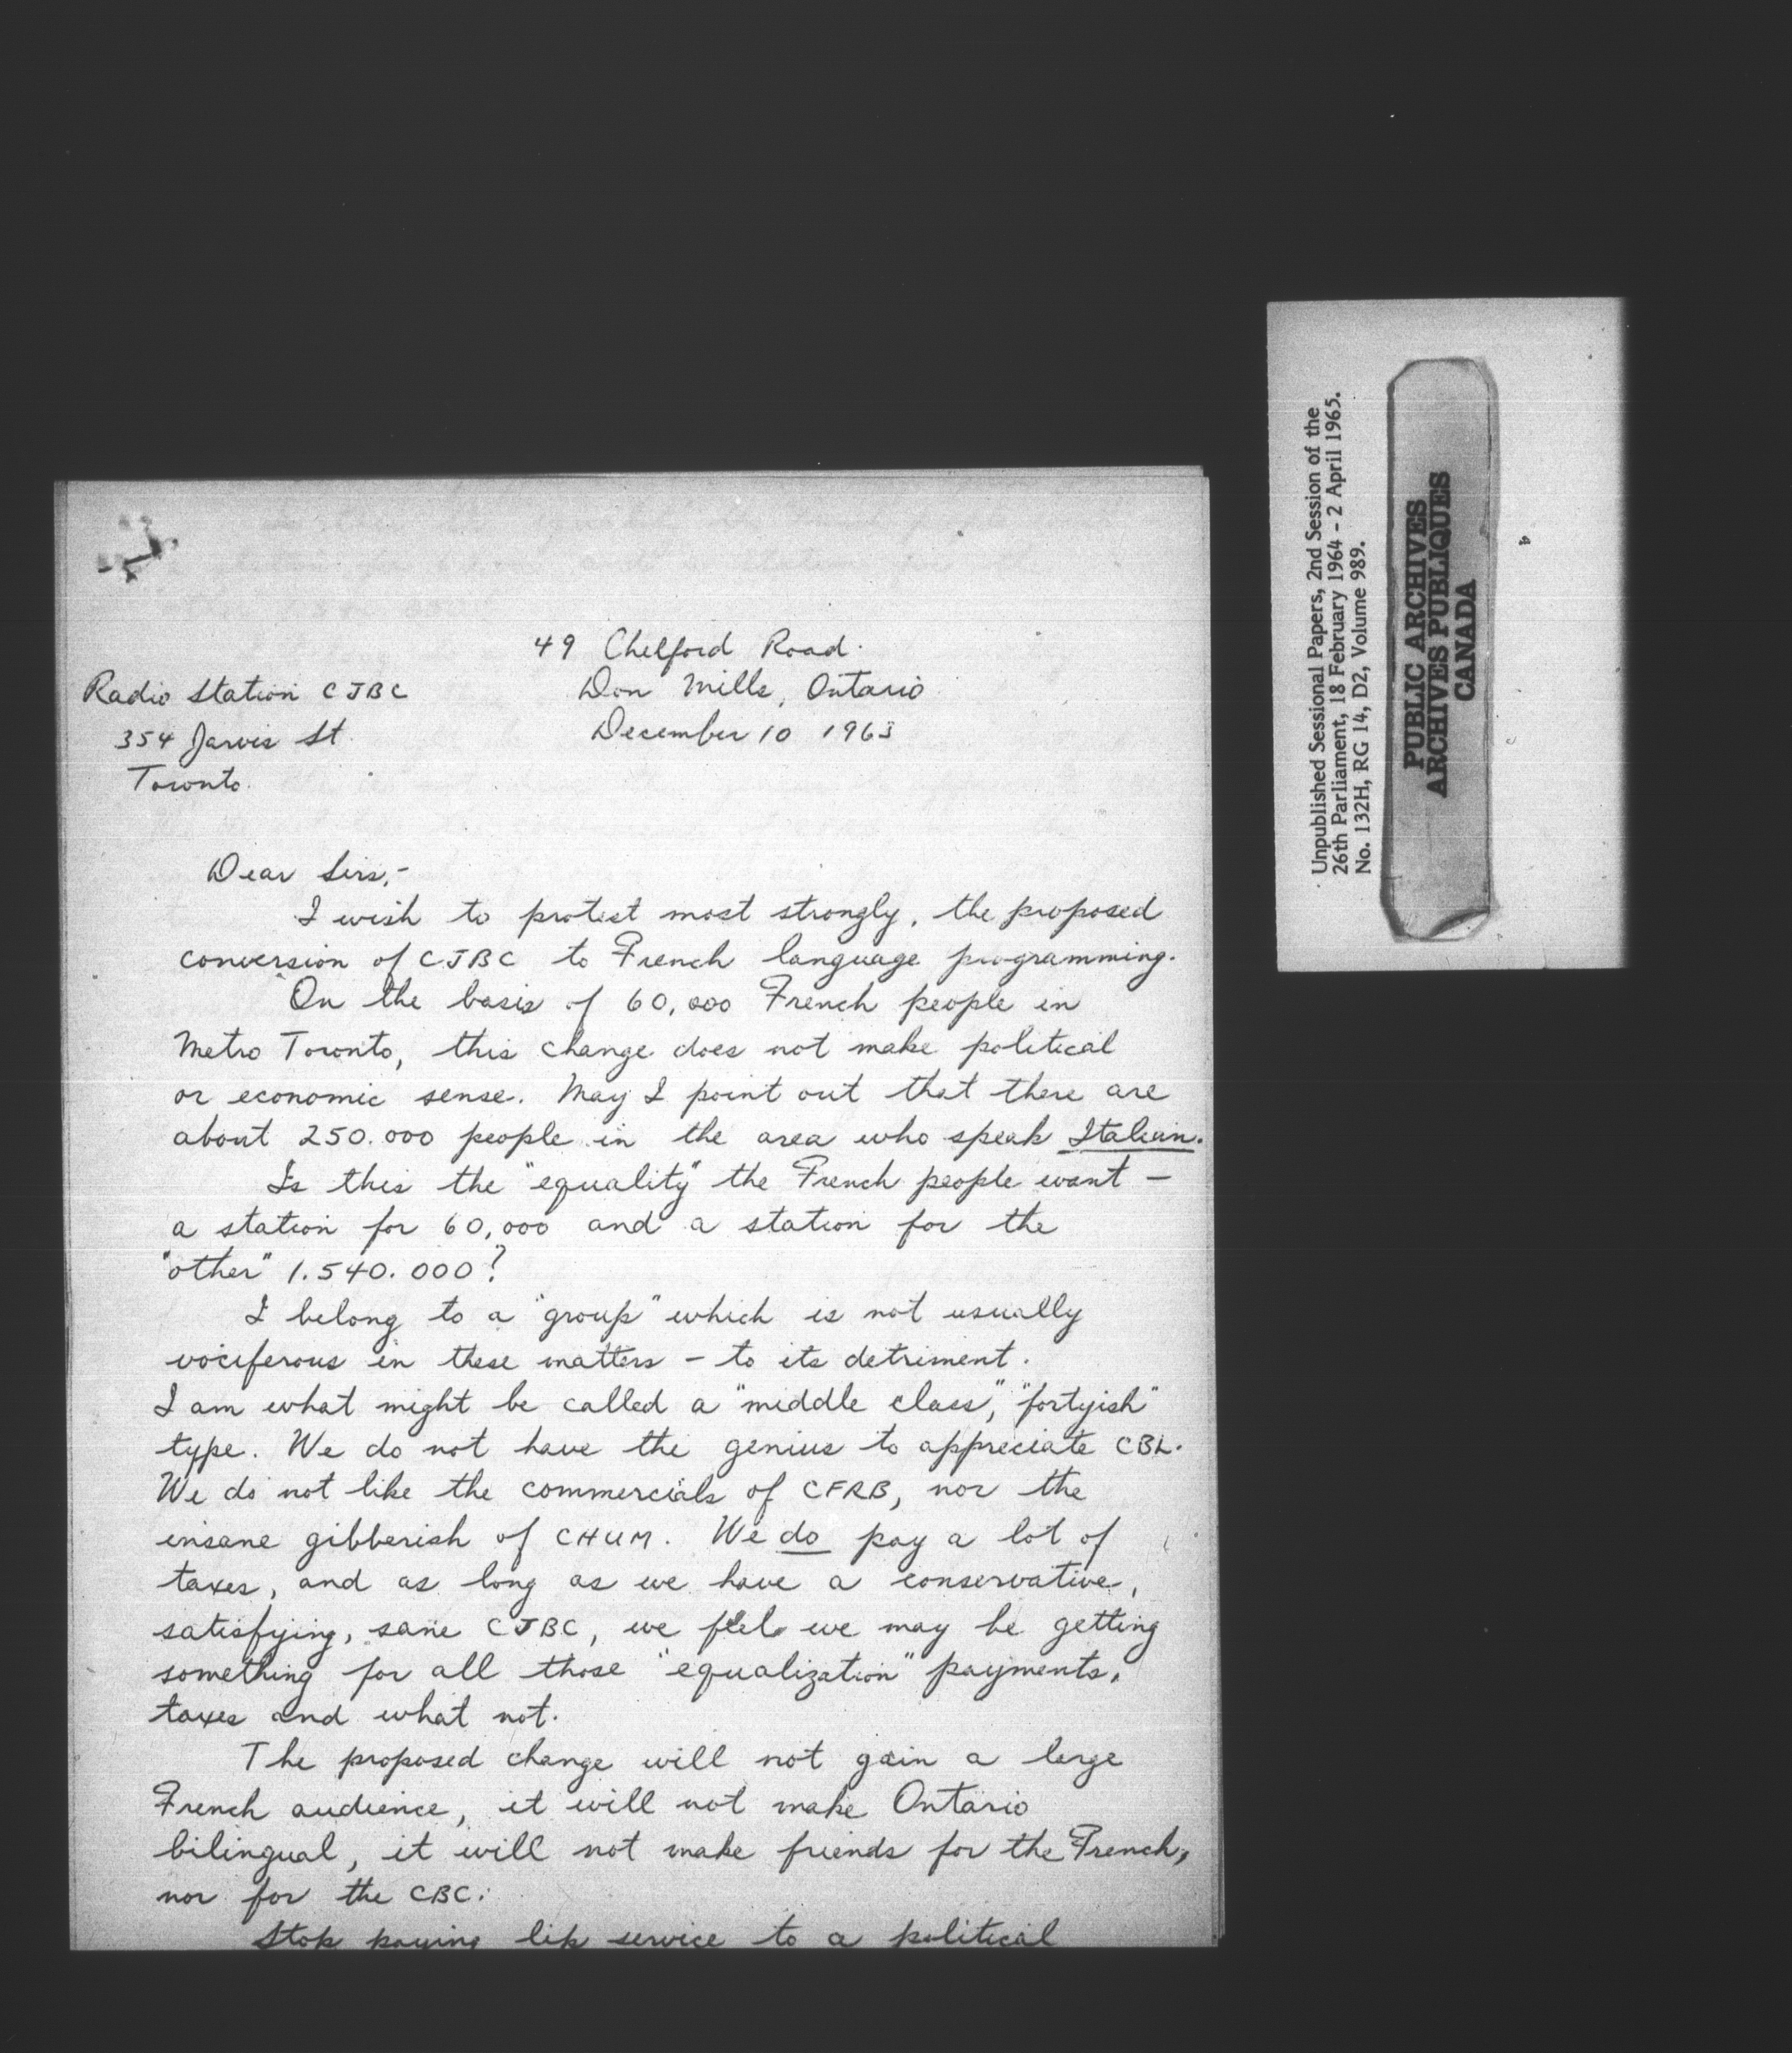 49 Chelford Road.
Don Mills, Ontario
December 10 1963
Radio Station CJBC
354 Jarvis St.
Toronto.
Dear Sirs,-
I wish to protest most strongly, the proposed
conversion of CJBC to French language programming.
On the basis of 60,000 French people in
Metro Toronto, this change does not make political
or economic sense. May I point out that there are
about 250.000 people in the area who speak Italian.
Is this the "equality" the French people want -
a station for 60,000 and a station for the
"other" 1.540.000?
I belong to a "group" which is not usually
vociferous in these matters - to its detriment.
I am what might be called a "middle class", "fortyish"
type. We do not have the genius to appreciate CBL.
We do not like the commercials of CFRB, nor the
insane gibberish of CHUM. We do pay a lot of
taxes, and as long as we have a conservative,
satisfying, sane CJBC, we feel we may be getting
something for all those "equalization" payments,
taxes and what not.
The proposed change will not gain a large
French audience, it will not make Ontario
bilingual, it will not make friends for the French,
nor for the CBC.
Stop paying lip service to a political
Unpublished Sessional Papers, 2nd Session of the
26th Parliament, 18 February 1964 - 2 April 1965.
No. 132H, RG 14, D2, Volume 989.
PUBLIC ARCHIVES
ARCHIVES PUBLIQUES
CANADA